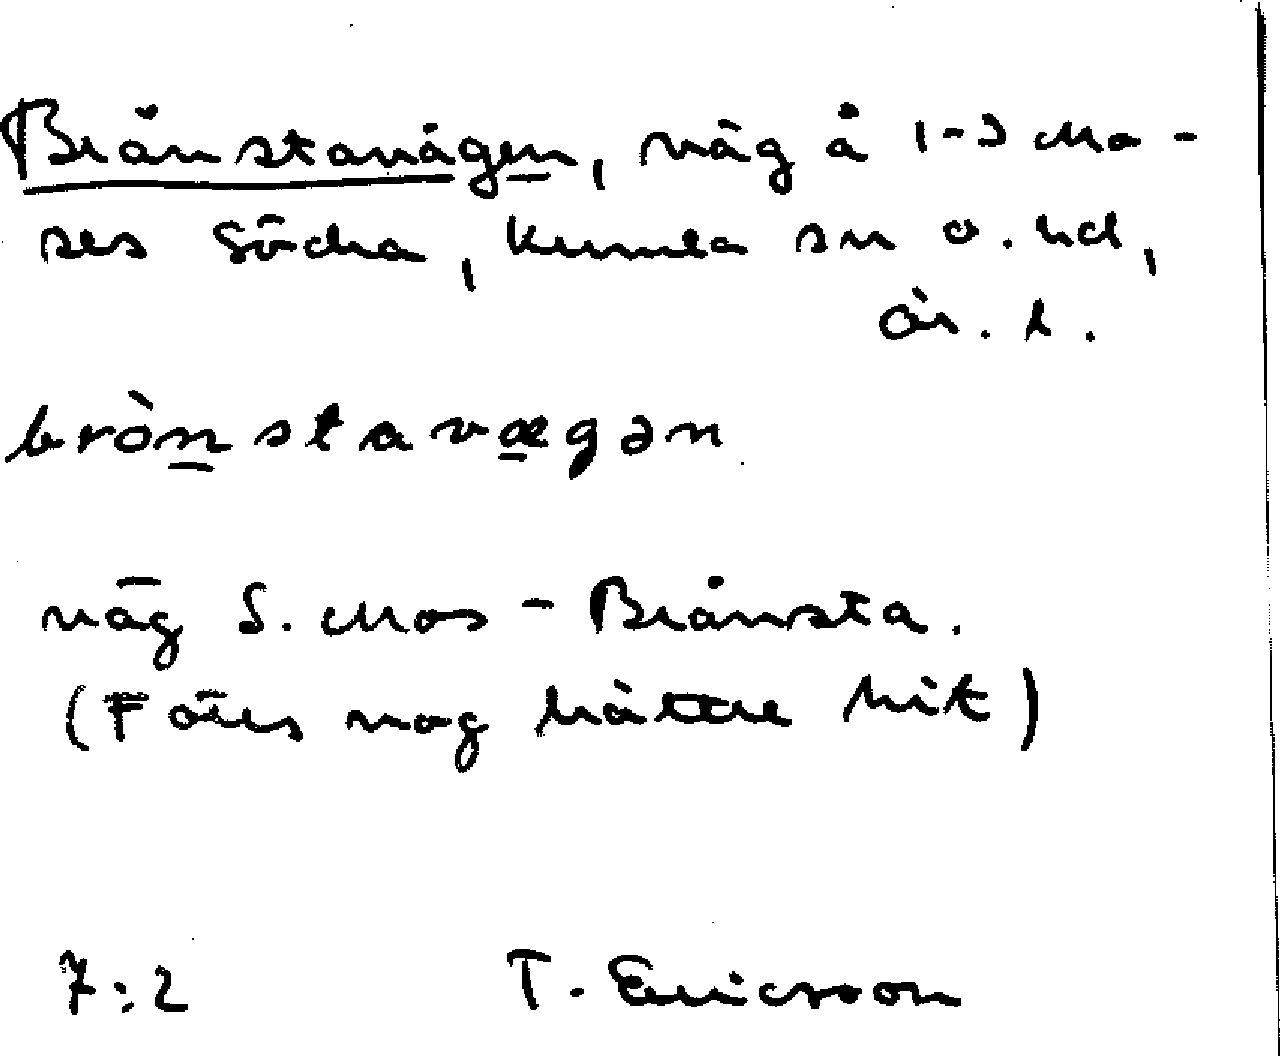 Brånstavägen, väg å 1-3 Mo-
ses Södra, Kumla sn o. hd,
ör. l.
brònstavægən
väg S. Mos - Brånsta.
(F öres mog bättre hit)
7:2 T. Ericsson